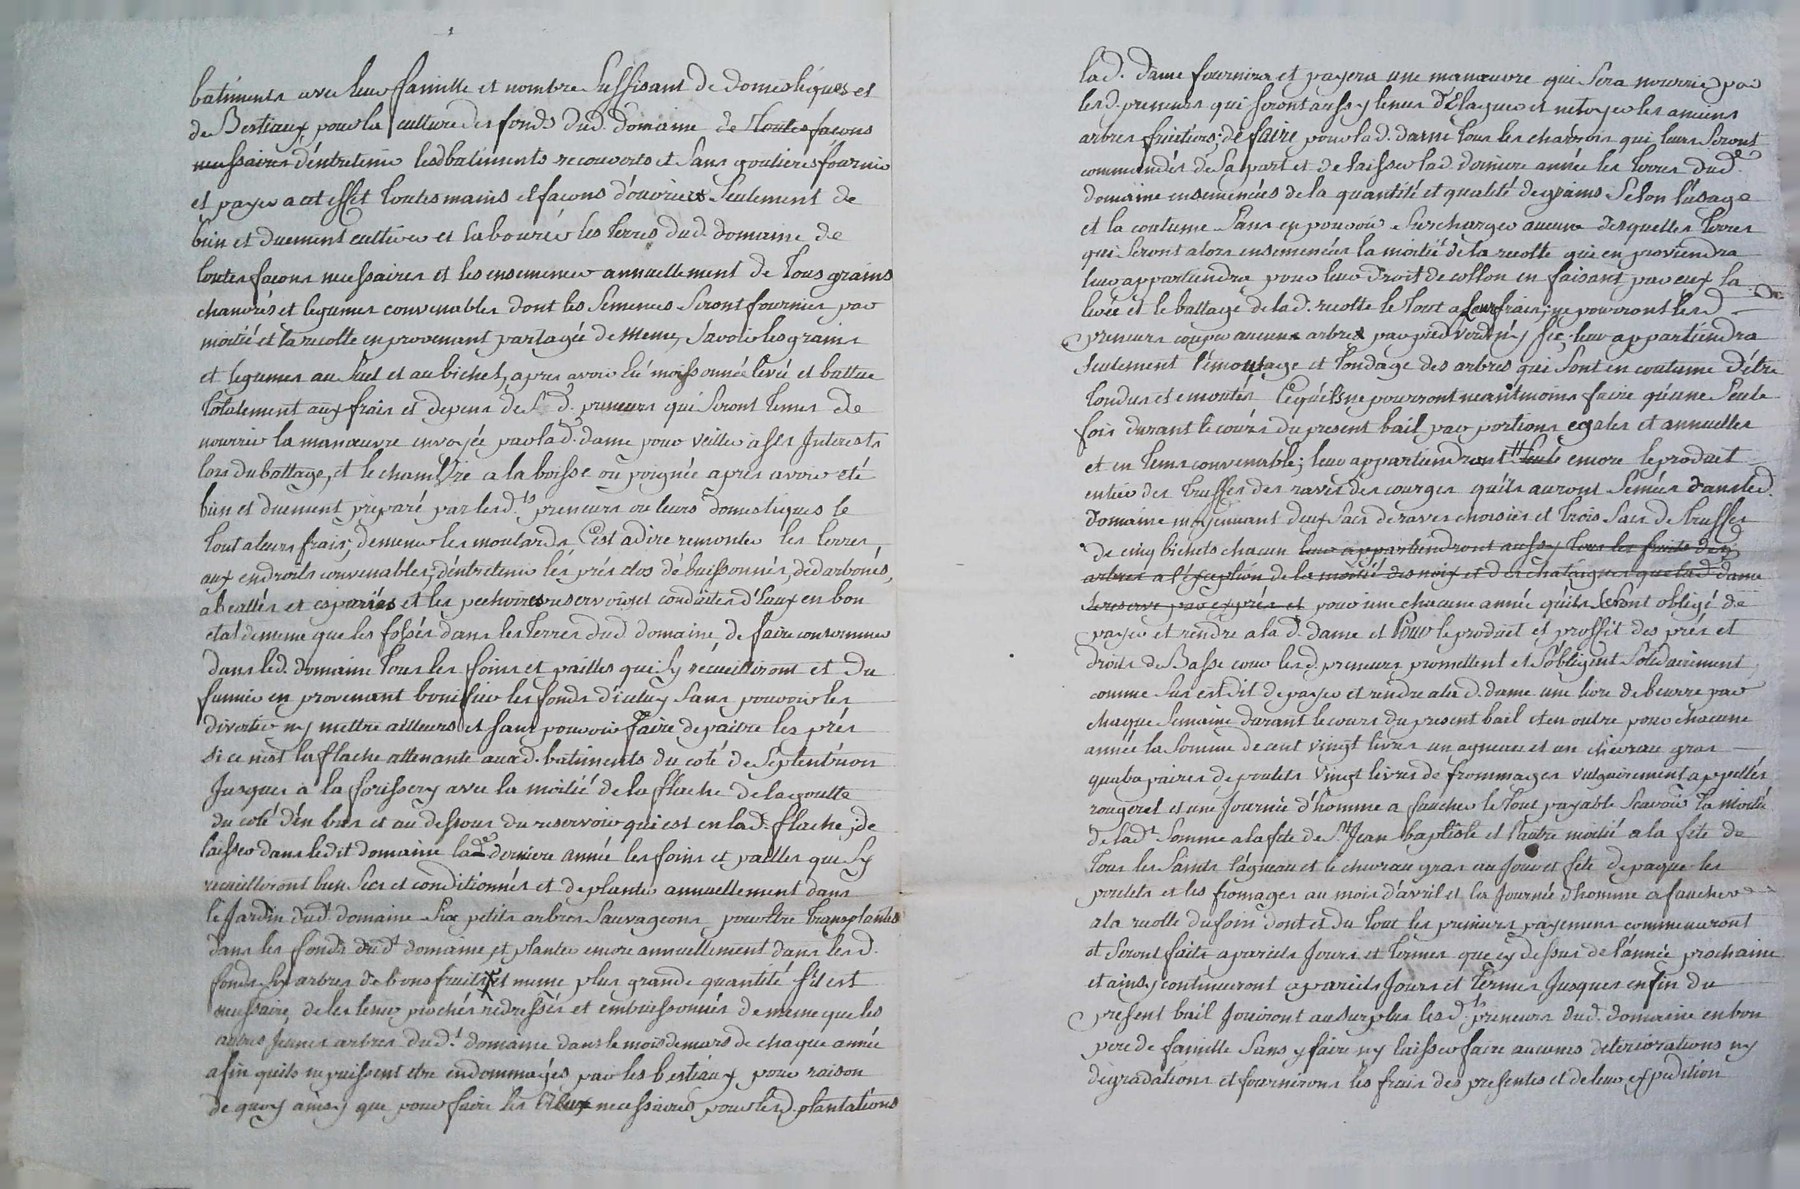 batiments avec leur famille et nombre suffisant de domestiques et
de Bestiaux, pour la culture des fonds dud. domaine de toutes façons
necessaires d'entretenir lesd batiments recouverts et sans goutieres fournir
et payer a cet effet toutes mains et façons d'ouvriers seulement de
bien et duement cultiver et labourer les terres dud. domaine de
toutes façons necessaires et les ensemencer annuellement de tous grains
chanvres et legumes convenables dont les semences seront fournies par
moitié et la recolte en provenant partagée de meme, savoir les grains
et legumes au suel et au bichet, apres avoir été moissonnée levée et battue
totalement aux frais et depens desd. preneurs qui seront tenus de
nourrir la manœuvre envoyée par lad. dame pour veiller a ses Interests
lors du battage, et le chamvre a la boisse ou poignée apres avoir eté
bien et duement preparé par lesd.ts preneurs ou leurs domestiques le
tout a leurs frais; de mener les moutards C'est a dire remonter les terres
aux endroits convenables; d'entretenir les prés clos de buissonnés, de darbonés,
abeallés et esparsés et les pechoires reservoirs et conduites d'Eaux en bon
etat de meme que les fossés dans les terres dud domaine, de faire consommer
dans led. domaine tous les foins et pailles qui s'y recueilliront et du
fumier en provenant bonifier les fonds d'iceluy sans pouvoir les
divertir ny mettre ailleurs et sans pouvoir faire depaitre les prés
si ce n'est la flache attenante auxd. batiments du coté de Septentrion
Jusques à la forissery avec la moitié de la flache de la goutte
du coté d'en bas et au dessous du reservoir qui est en lad. flache; de
laisser dans ledit domaine lad.e derniere année les foins et pailles qui s'y
recueilliront bien secs et conditionnés et de planter annuellement dans
le Jardin dud. domaine six petits arbres sauvageons pour être transplantés
dans les fonds dud.t domaine et planter encore annuellement dans lesd.
fonds six arbres de bons fruits et meme plus grande quantité s'il est
necessaire, de les tenir piochés redressés et embuissonnés de meme que les
autres Jeunes arbres dud.t domaine dans le mois de mars de chaque année
afin qu'ils ne puissent etre endommagés par les bestiaux pour raison
de quoy ainsy que pour faire les creux necessaires pour lesd. plantations
lad. dame fournira et payera une manœuvre qui sera nourrie par
lesd. preneurs qui seront aussy tenus d'Elaguer et netoyer les anciens
arbres fruitiers; de faire pour lad. dame tous les charrois qui leurs seront
commandés de sa part et de laisser lad. derniere année les terres dud.
domaine ensemencées de la quantité et qualité de grains selon l'usage
et la coutume sans en pouvoir surcharger aucune desquelles terres
qui seront alors ensemencées la moitié de la recolte qui en proviendra
leur appartiendra pour leur droit de collon en faisant par eux la
levée et le battage de lad. recolte le tout a leur frais; ne pourront lesd.
preneurs couper aucuns arbres par pied verd ny sec, leur appartiendra
seulement l'émontage et tondage des arbres qui sont en coutume d'être
tondus et emontés Ce qu'ils ne pourront neantmoins faire qu'une seule
fois durant le cours du present bail par portions egales et annuelles
et en tems convenable; leur appartiendront encore le produit
entier des truffes des raves des courges qu'ils auront semées dans led.
domaine moyennant deux sacs de raves choisies et trois sacs de truffes
de cinq bichets chacun leur appartiendront aussy tous les fruits des
arbres a l'exeption de la moitié des noix et des chataignes que lad. dame
se reserve par exprés et pour une chacune année qu'ils seront obligé de
payer et rendre a lad. dame et Pour le produit et proffit des prés et
droits de Basse cour lesd. preneurs promettent et s'obligent solidairement
comme sus est dit de payer et rendre a lad. dame une livre de beurre par
chaque semaine durant le cours du present bail et en outre pour chacune
année la somme de cent vingt livres un agneau et un chevrau gras
quatre paires de poulets vingt livres de frommages vulgairement appellés
rougeret et une Journée d'homme a faucher le tout payable scavoir la moitié
de lad.t somme a la fete de St Jean baptiste et l'autre moitié a la fete de
tous les saints l'agneau et le chevrau gras au Jour et fete de paque les
poulets et les fromages au mois d'avril et la Journée d'homme a faucher
a la recolte du foin dont et du tout les premiers payemens commenceront
et seront faits a pareils Jours et termes que cy dessus de l'année prochaine
et ainsy continueront a pareils Jours et termes Jusques en fin du
present bail Jouiront au surplus lesd.ts preneurs dud. domaine en bon
pere de famille sans y faire ny laisser faire aucunes deteriorations ny
degradations et fourniront les frais des presentes et de leur expedition